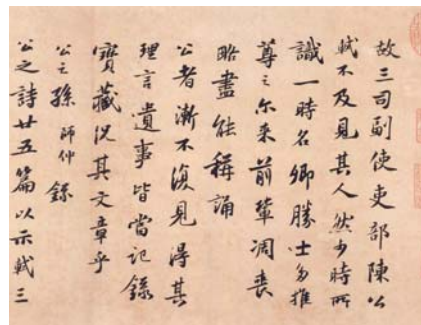 故三司副使吏部陳公
軾不及見其人然少時所
識一時名卿勝士多推
尊之尔来前輩凋喪
略盡能稱誦
公者漸不復見得其
理言遺事皆當記錄
寶藏況其文章乎
公之孫師仲錄
公之詩廿五篇以示軾三